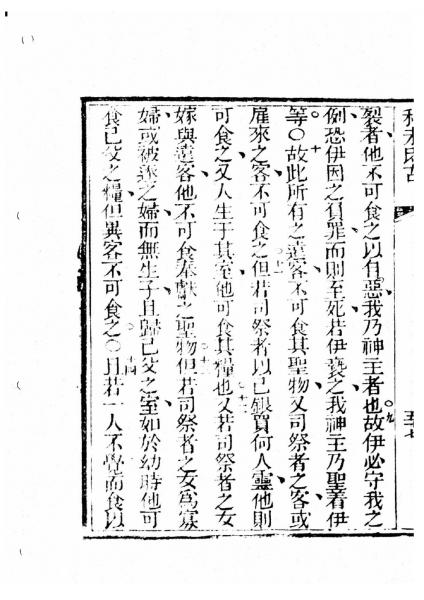 利未氏古 五十七
裂者他不可食之以自惡我乃神主者也九故伊必守我之
例恐伊因之負罪而則至死若伊褻之我神主乃聖着伊
等〇十故此所有之遠客不可食其聖物又司祭者之客或
雇來之客不可食之十一但若司祭者以己銀買何人靈他則
可食之又人生于其室他可食其糧也十二又若司祭者之女
嫁與遠客他不可食奉獻之聖物十三但若司祭者之女為寡
婦或被逐之婦而無生子且歸己父之室如於幼時他可
食己父之糧但異客不可食之〇十四且若一人不覺而食以